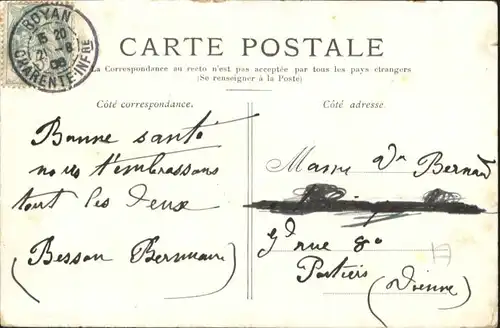 ROYAN
CHARENTE-INFRE
CARTE POSTALE
La Correspondance au recto n'est pas acceptée par tous les pays étrangers
(Se renseigner à la Poste)
Côté correspondance.
Côté adresse.
Bonne santé
nous t'embrassons
tout les deux
(Besson
Vve Bernard
rue
Poitiers
(Vienne)